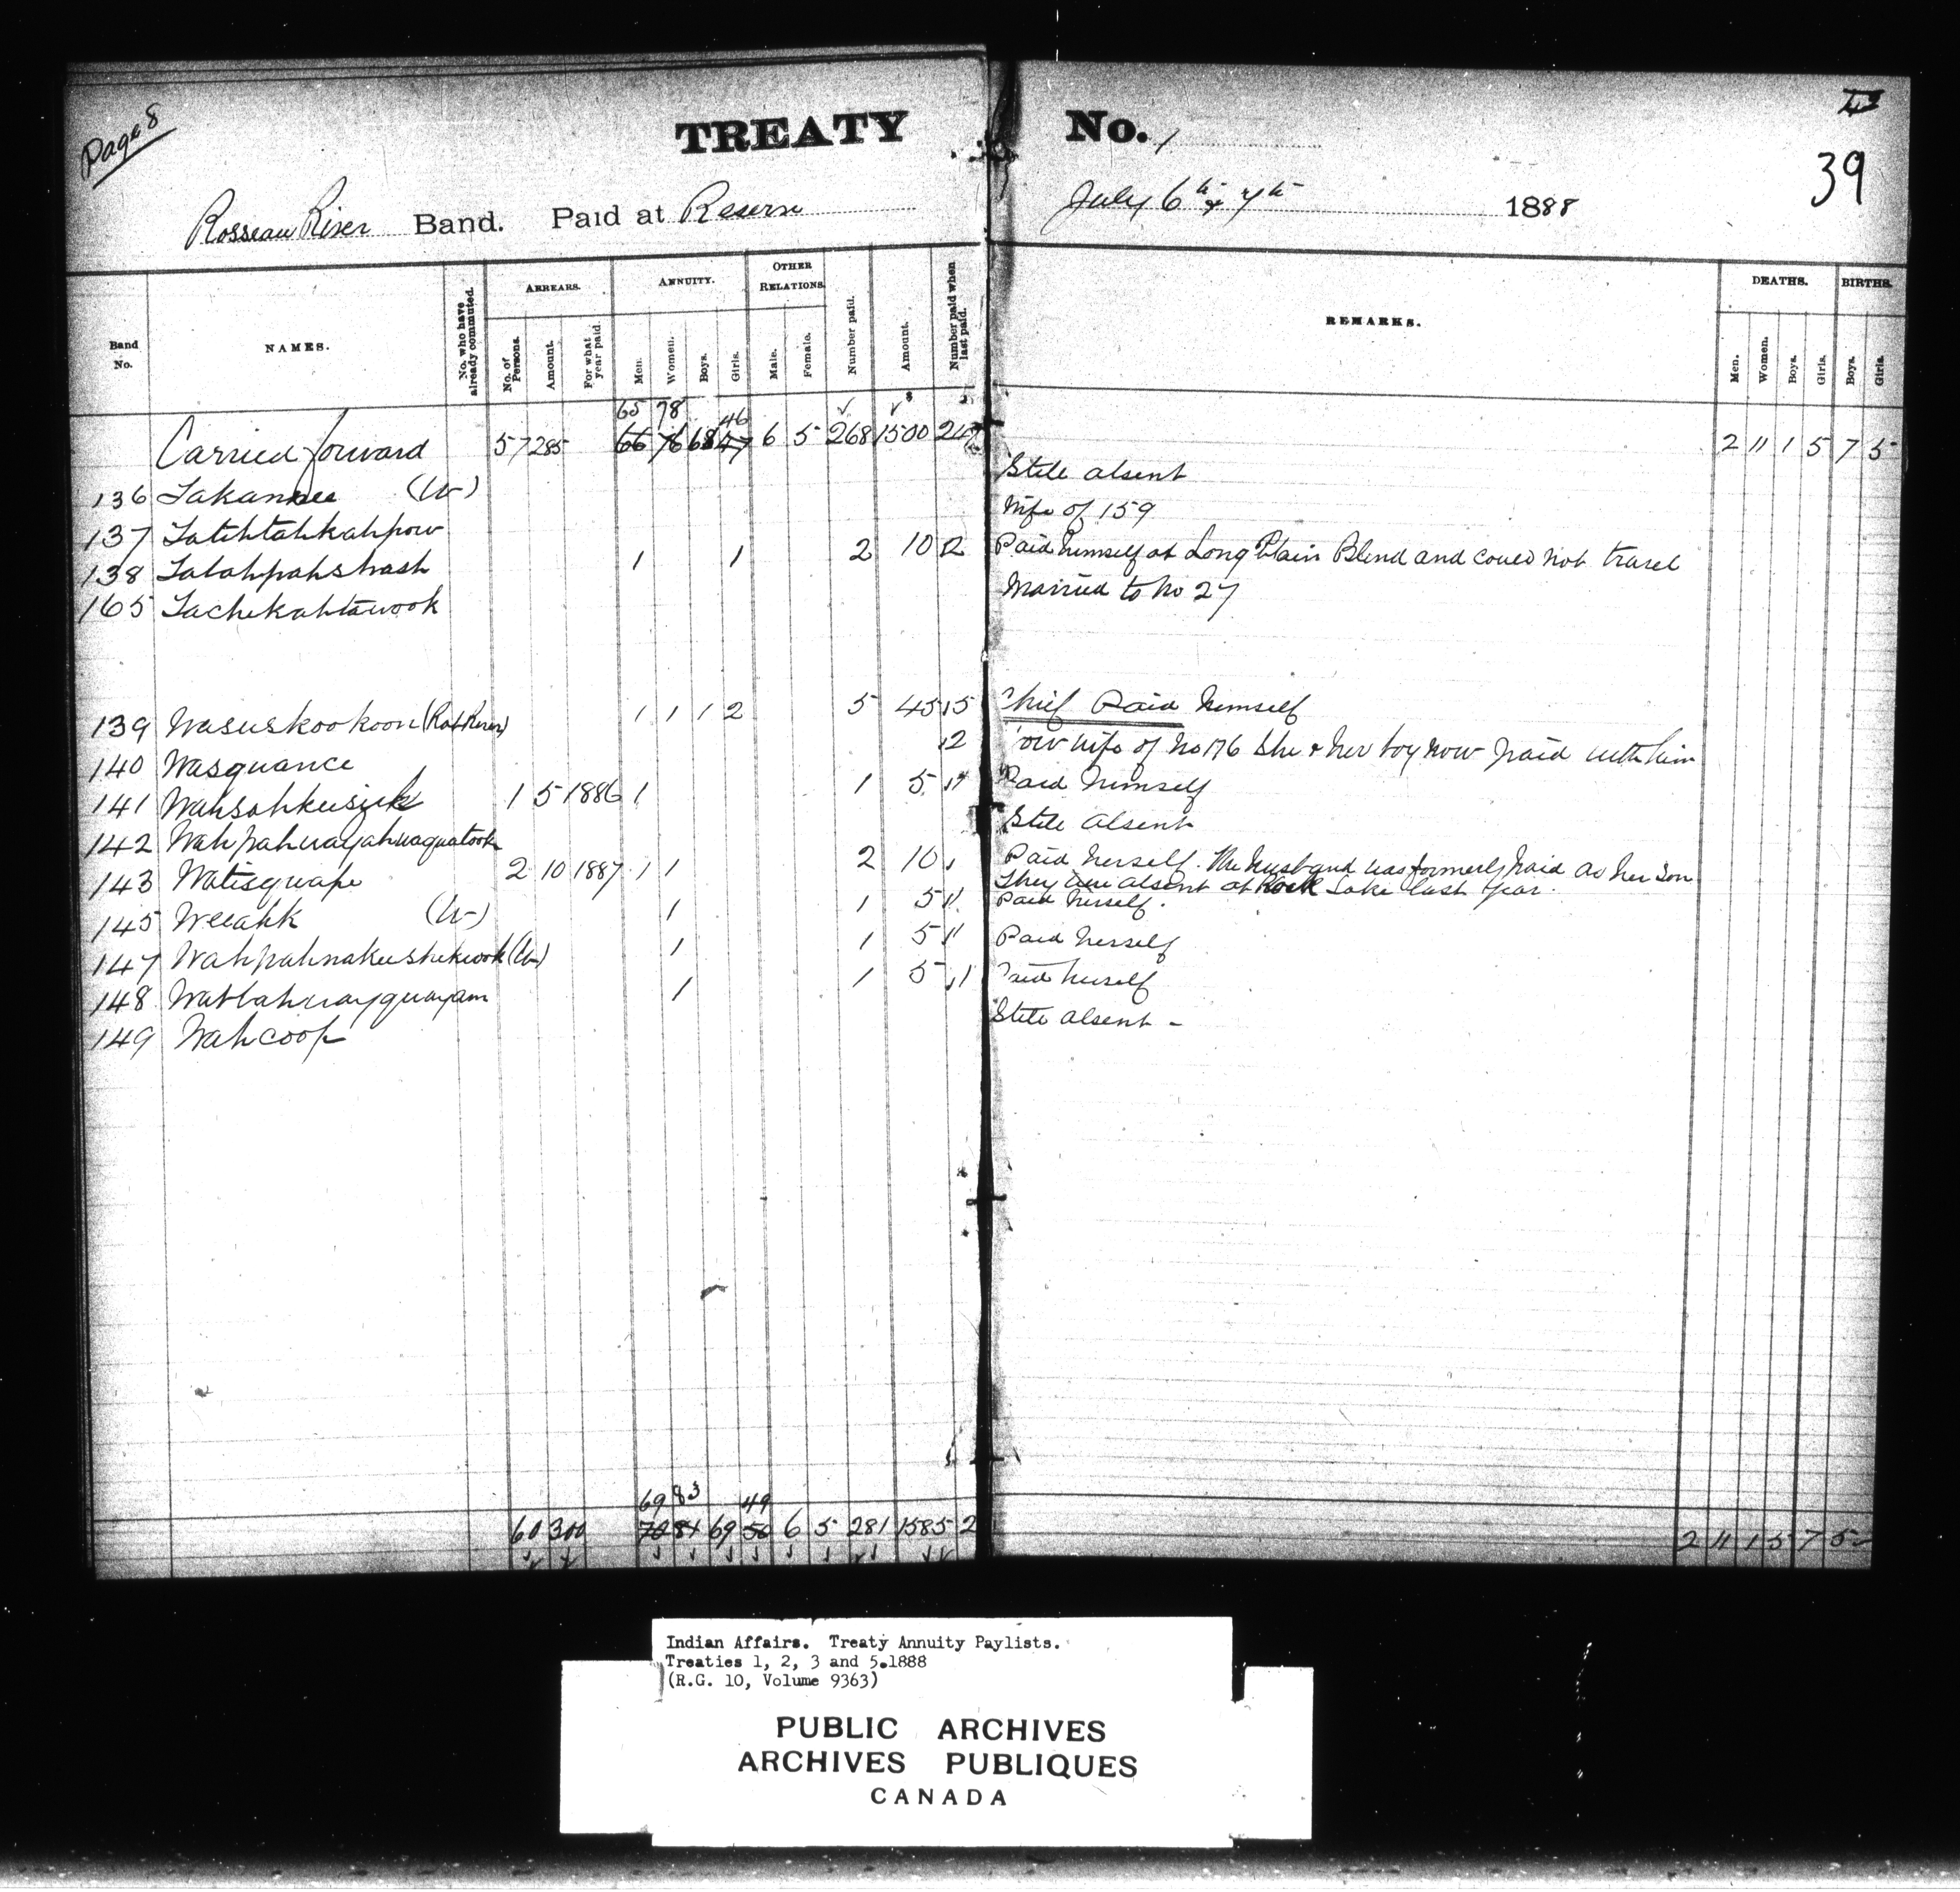 Page 8
TREATY No. 1
39
Rosseau River Band. Paid at Reserve July 6th & 7th 1888
Band No.
NAMES.
No. who have already commuted.
ARREARS.
No. of Persons.
Amount.
For what year paid.
ANNUITY.
Men.
Women.
Boys.
Girls.
OTHER RELATIONS.
Male.
Female.
Number paid.
Amount.
Number paid when last paid.
REMARKS.
DEATHS.
Men.
Women.
Boys.
Girls.
BIRTHS.
Boys.
Girls.
65 78 46
Carried forward 57 285 66 76 68 47 6 5 268 1500 247 2 11 1 5 7 5
136 (W) Still absent
137 Tatihtahkahpow Wife of 159
138 Tatahpahshash 1 1 2 10 2 Paid himself at Long Plain Blind and could not travel
165 Tachekahtawook Married to No 27
139 Wasuskookoon (Rat River) 1 1 1 2 5 45 5 Chief Paid himself
140 Wasquance 2 wife of No 176 She & her boy now paid with him
141 Wahsahkeesick 1 5 1886 1 1 5 Paid himself
142 Wahpahwayahwaquatook Still absent
143 Watisquape 2 10 1887 1 1 2 10 Paid herself. The husband was formerly paid as her son
They were absent at Rock Lake last year.
145 Weeahk (W) 1 1 5 1 Paid herself.
147 Wahpahnakeeshekwook (W) 1 1 5 1 Paid herself
148 Wabbahwayquayam 1 1 5 1 Paid herself
149 Wahcoop Still absent -
69 83 49
60 300 70 84 69 50 6 5 281 1585 2 2 11 1 5 7 5
Indian Affairs. Treaty Annuity Paylists.
Treaties 1, 2, 3 and 5.1888
(R.G. 10, Volume 9363)
PUBLIC ARCHIVES
ARCHIVES PUBLIQUES
CANADA